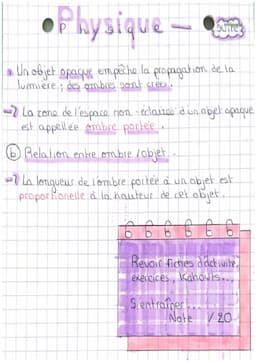 Physique -
Suite
Un objet opaque empêche la propagation de la
lumière ; des ombres sont créés.
→ La zone de l'espace non-éclairée d'un objet opaque
est appellée ombre portée.
b Relation entre ombre / objet.
→ La longueur de l'ombre portée d'un objet est
proportionelle à la hauteur de cet objet.
Revoir fiches d'activité,
exercices, Kahouts...
S'entraîner...
Note /20